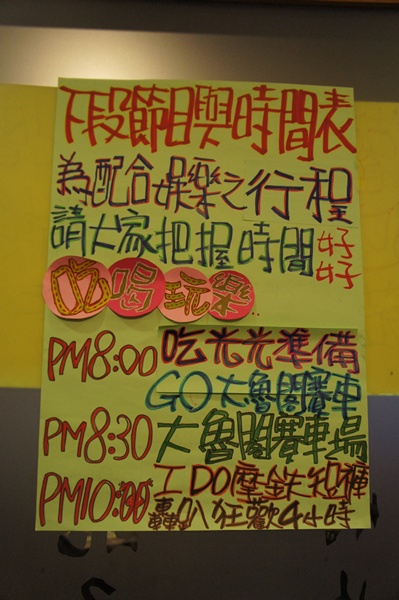 下段節目與時間表
為配合娛樂之行程
請大家把握時間好好
吃喝玩樂
PM8:00 吃光光準備
GO大魯閣賽車
PM8:30 大魯閣賽車場
PM10:00 I DO摩鉄知褲
轟趴狂歡4小時